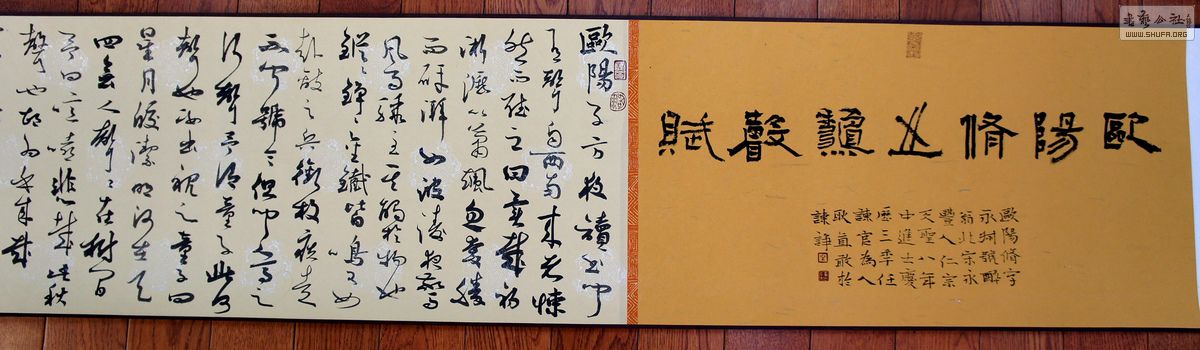 書藝公社
WWW.SHUFA.ORG
歐陽脩之龝聲賦
歐陽脩字
永叔號醉
翁北宋永
豐人仁宗
天聖八年
中進士慶
歷三年任
諫官為人
耿直敢於
諫諍
歐陽子方夜讀書聞
有聲自西南來者悚
然而聽之曰異哉初
淅瀝以蕭颯忽奔騰
而砰湃如波濤夜驚
風雨驟至其觸於物也
鏦々錚々金鐵皆鳴又如
赴敵之兵銜枚疾走
不聞號令但聞人馬之
行聲予謂童子此何
聲也汝出視之童子曰
星月皎潔明河在天
四無人聲々在樹間
予曰噫嘻悲哉此秋
聲也胡為乎來哉